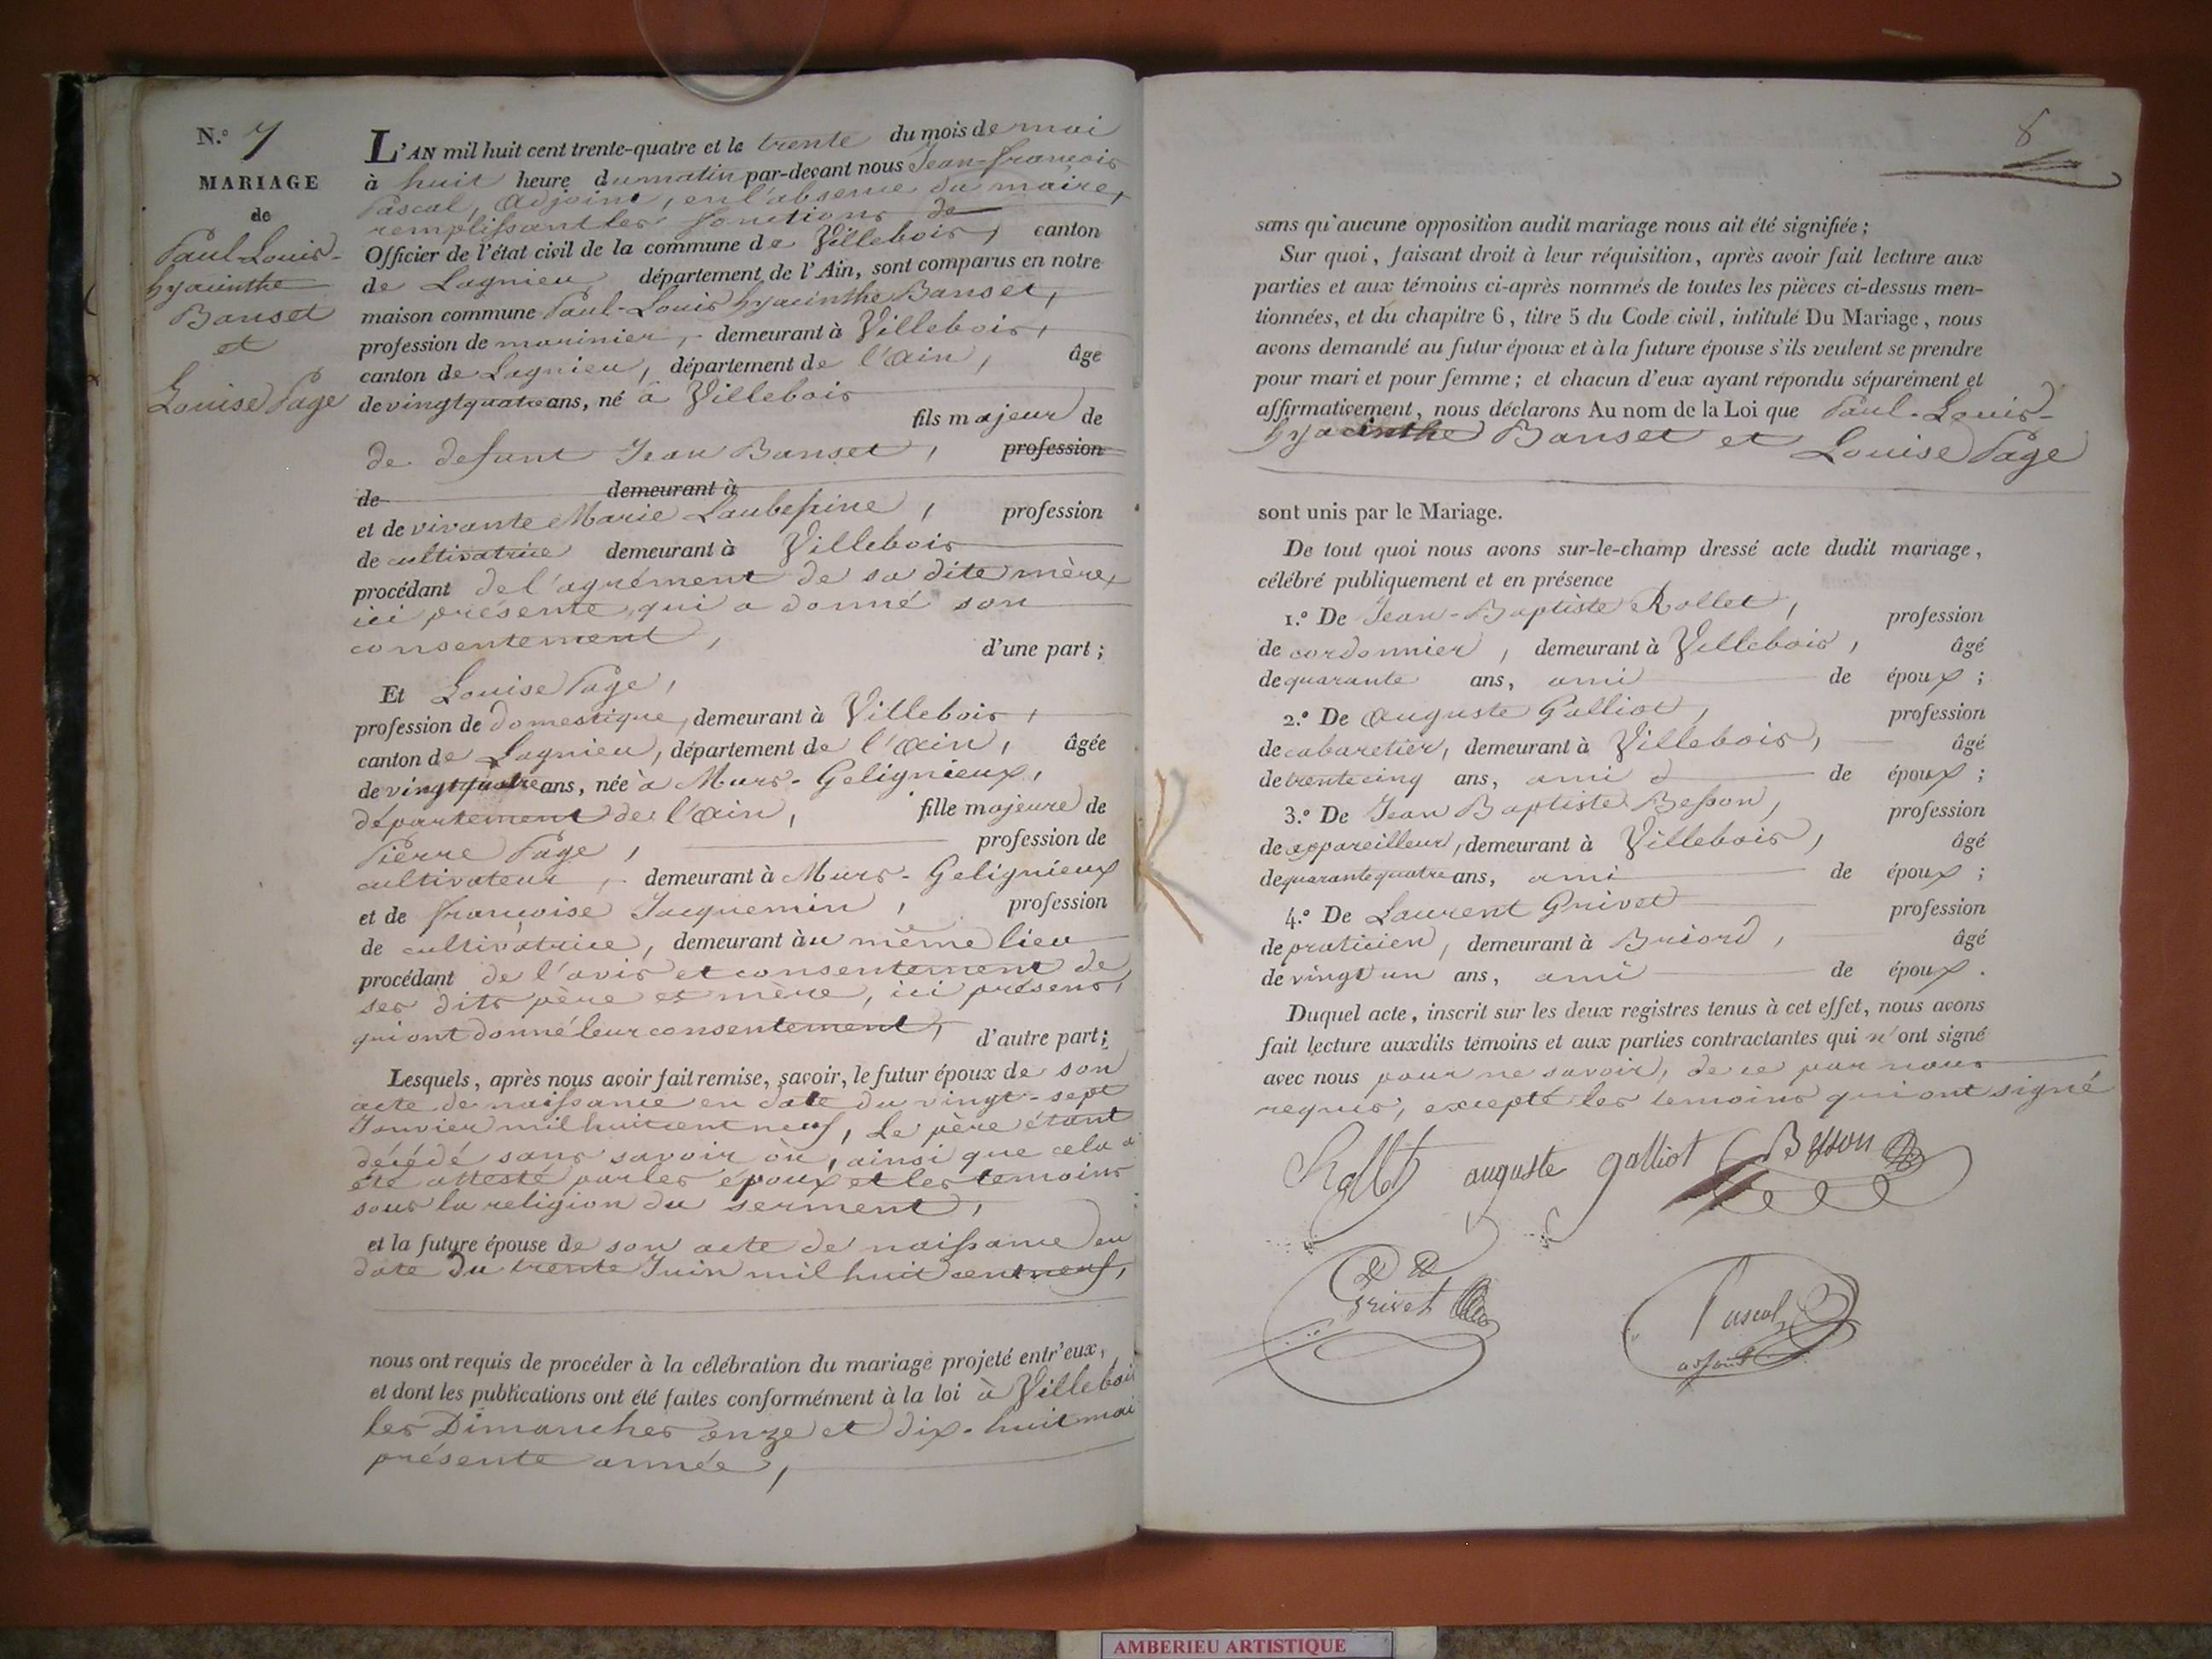 N.° 7
MARIAGE
de
Paul-Louis-
hyacinthe
Banset
et
Louise Page
L'AN mil huit cent trente-quatre et le trente du mois de mai
à huit heure du matin par-devant nous Jean-françois
Pascal, adjoint, en l'absence du maire,
remplissant les fonctions de
Officier de l'état civil de la commune de Villebois, canton
de Lagnieu, département de l'Ain, sont comparus en notre
maison commune Paul-Louis hyacinthe Banset,
profession de marinier, demeurant à Villebois,
canton de Lagnieu, département de l'ain, âgé
de vingtquatre ans, né à Villebois
fils majeur de
de defunt Jean Banset, profession
de demeurant à
et de vivante Marie Laubepine, profession
de cultivatrice demeurant à Villebois
procédant de l'agrément de sa dite mère,
ici présente, qui a donné son
consentement, d'une part;
Et Louise Page,
profession de domestique, demeurant à Villebois,
canton de Lagnieu, département de l'ain, âgée
de vingtquatre ans, née à Murs-Gelignieux,
département de l'ain, fille majeure de
Pierre Page, profession de
cultivateur, demeurant à Murs-Gelignieux
et de françoise Jacquemin, profession
de cultivatrice, demeurant àu même lieu
procédant de l'avis et consentement de
ses dits père et mère, ici présens,
qui ont donné leur consentement, d'autre part;
Lesquels, après nous avoir fait remise, savoir, le futur époux de son
acte de naissance en date du vingt-sept
Janvier mil huit cent neuf, Le père étant
décédé sans savoir où, ainsi que cela a
été attesté par les époux et les temoins
sous la religion du serment,
et la future épouse de son acte de naissance en
date du trente Juin mil huit cent neuf,
nous ont requis de procéder à la célébration du mariage projeté entr'eux,
et dont les publications ont été faites conformément à la loi à Villebois
les Dimanches onze et dix-huit mai
présente année,
8
sans qu'aucune opposition audit mariage nous ait été signifiée;
Sur quoi, faisant droit à leur réquisition, après avoir fait lecture aux
parties et aux témoins ci-après nommés de toutes les pièces ci-dessus men-
tionnées, et du chapitre 6, titre 5 du Code civil, intitulé Du Mariage, nous
avons demandé au futur époux et à la future épouse s'ils veulent se prendre
pour mari et pour femme; et chacun d'eux ayant répondu séparément et
affirmativement, nous déclarons Au nom de la Loi que Paul-Louis-
hyacinthe Banset et Louise Page
sont unis par le Mariage.
De tout quoi nous avons sur-le-champ dressé acte dudit mariage,
célébré publiquement et en présence
1.° De Jean-Baptiste Rollet, profession
de cordonnier, demeurant à Villebois, âgé
de quarante ans, ami de époux;
2.° De auguste Galliot, profession
de cabaretier, demeurant à Villebois, âgé
de trente cinq ans, ami de époux;
3.° De Jean Baptiste Besson, profession
de appareilleur, demeurant à Villebois, âgé
de quarante quatre ans, ami de époux;
4.° De Laurent Grivet profession
de praticien, demeurant à Briord, âgé
de vingt un ans, ami de époux.
Duquel acte, inscrit sur les deux registres tenus à cet effet, nous avons
fait lecture auxdits témoins et aux parties contractantes qui n'ont signé
avec nous pour ne savoir, de ce par nous
requis, excepté les temoins qui ont signé
Rollet auguste galliot Besson
Grivet
Pascal
adjoint
AMBERIEU ARTISTIQUE